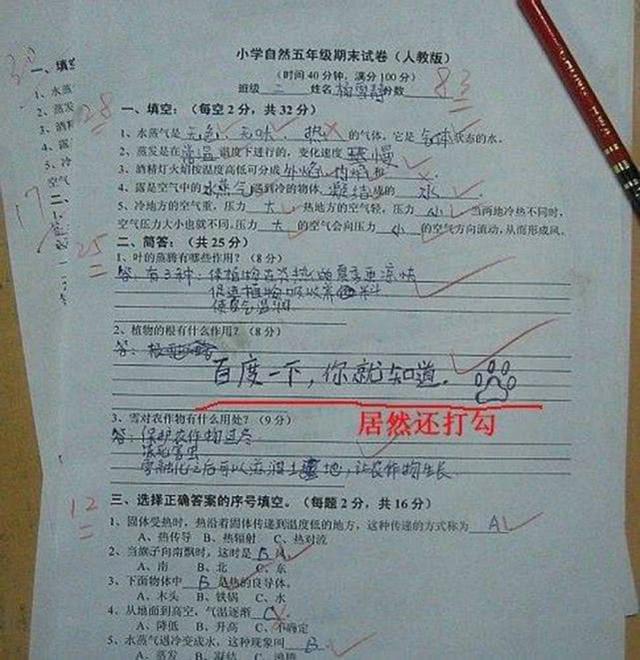 小学自然五年级期末试卷（人教版）
（时间40分钟，满分100分）
班级 二 姓名 分数 83
一、填空：（每空2分，共32分）
28
1、水蒸气是 无色、无味、热 的气体，它是 气体 状态的水。
2、蒸发是在 常温 温度下进行的，变化速度 慢
3、酒精灯火焰按温度高低可分成 外焰 内焰
4、露是空气中的 水蒸气 遇到冷的物体 凝结 成的 水
5、冷地方的空气重，压力 大 热地方的空气轻，压力 小 当两地冷热不同时，
空气压力大小也就不同。压力 大 的空气会向压力 小 的空气方向流动，从而形成风。
25
二、简答：（共25分）
1、叶的蒸腾有哪些作用？（8分）
答：有三种：保植物在炎热的夏季更凉快
促进植物吸收养料
使空气湿润
2、植物的根有什么作用？（8分）
答：
百度一下，你就知道。
居然还打勾
3、雪对农作物有什么用处？（9分）
答：保护农作物过冬
冻死害虫
雪融化之后可以滋润土地，让农作物生长
12
三、选择正确答案的序号填空。（每题2分，共16分）
1、固体受热时，热沿着固体传到温度低的地方，这种传递的方式称为 A
A、热传导 B、热辐射 C、热对流
2、当旗子向南飘时，这时是 B 风。
A、南 B、北 C、东
3、下面物体中 B 是热的良导体。
A、木头 B、铁锅 C、水
4、从地面到高空，气温逐渐 C
A、降低 B、升高 C、不确定
5、水蒸气遇冷变成水，这种现象叫 B
A、蒸发 B、凝结 C、沸腾
17
一、填空
1、水蒸
2、蒸发
3、酒精
4、露
5、冷
空气
二、